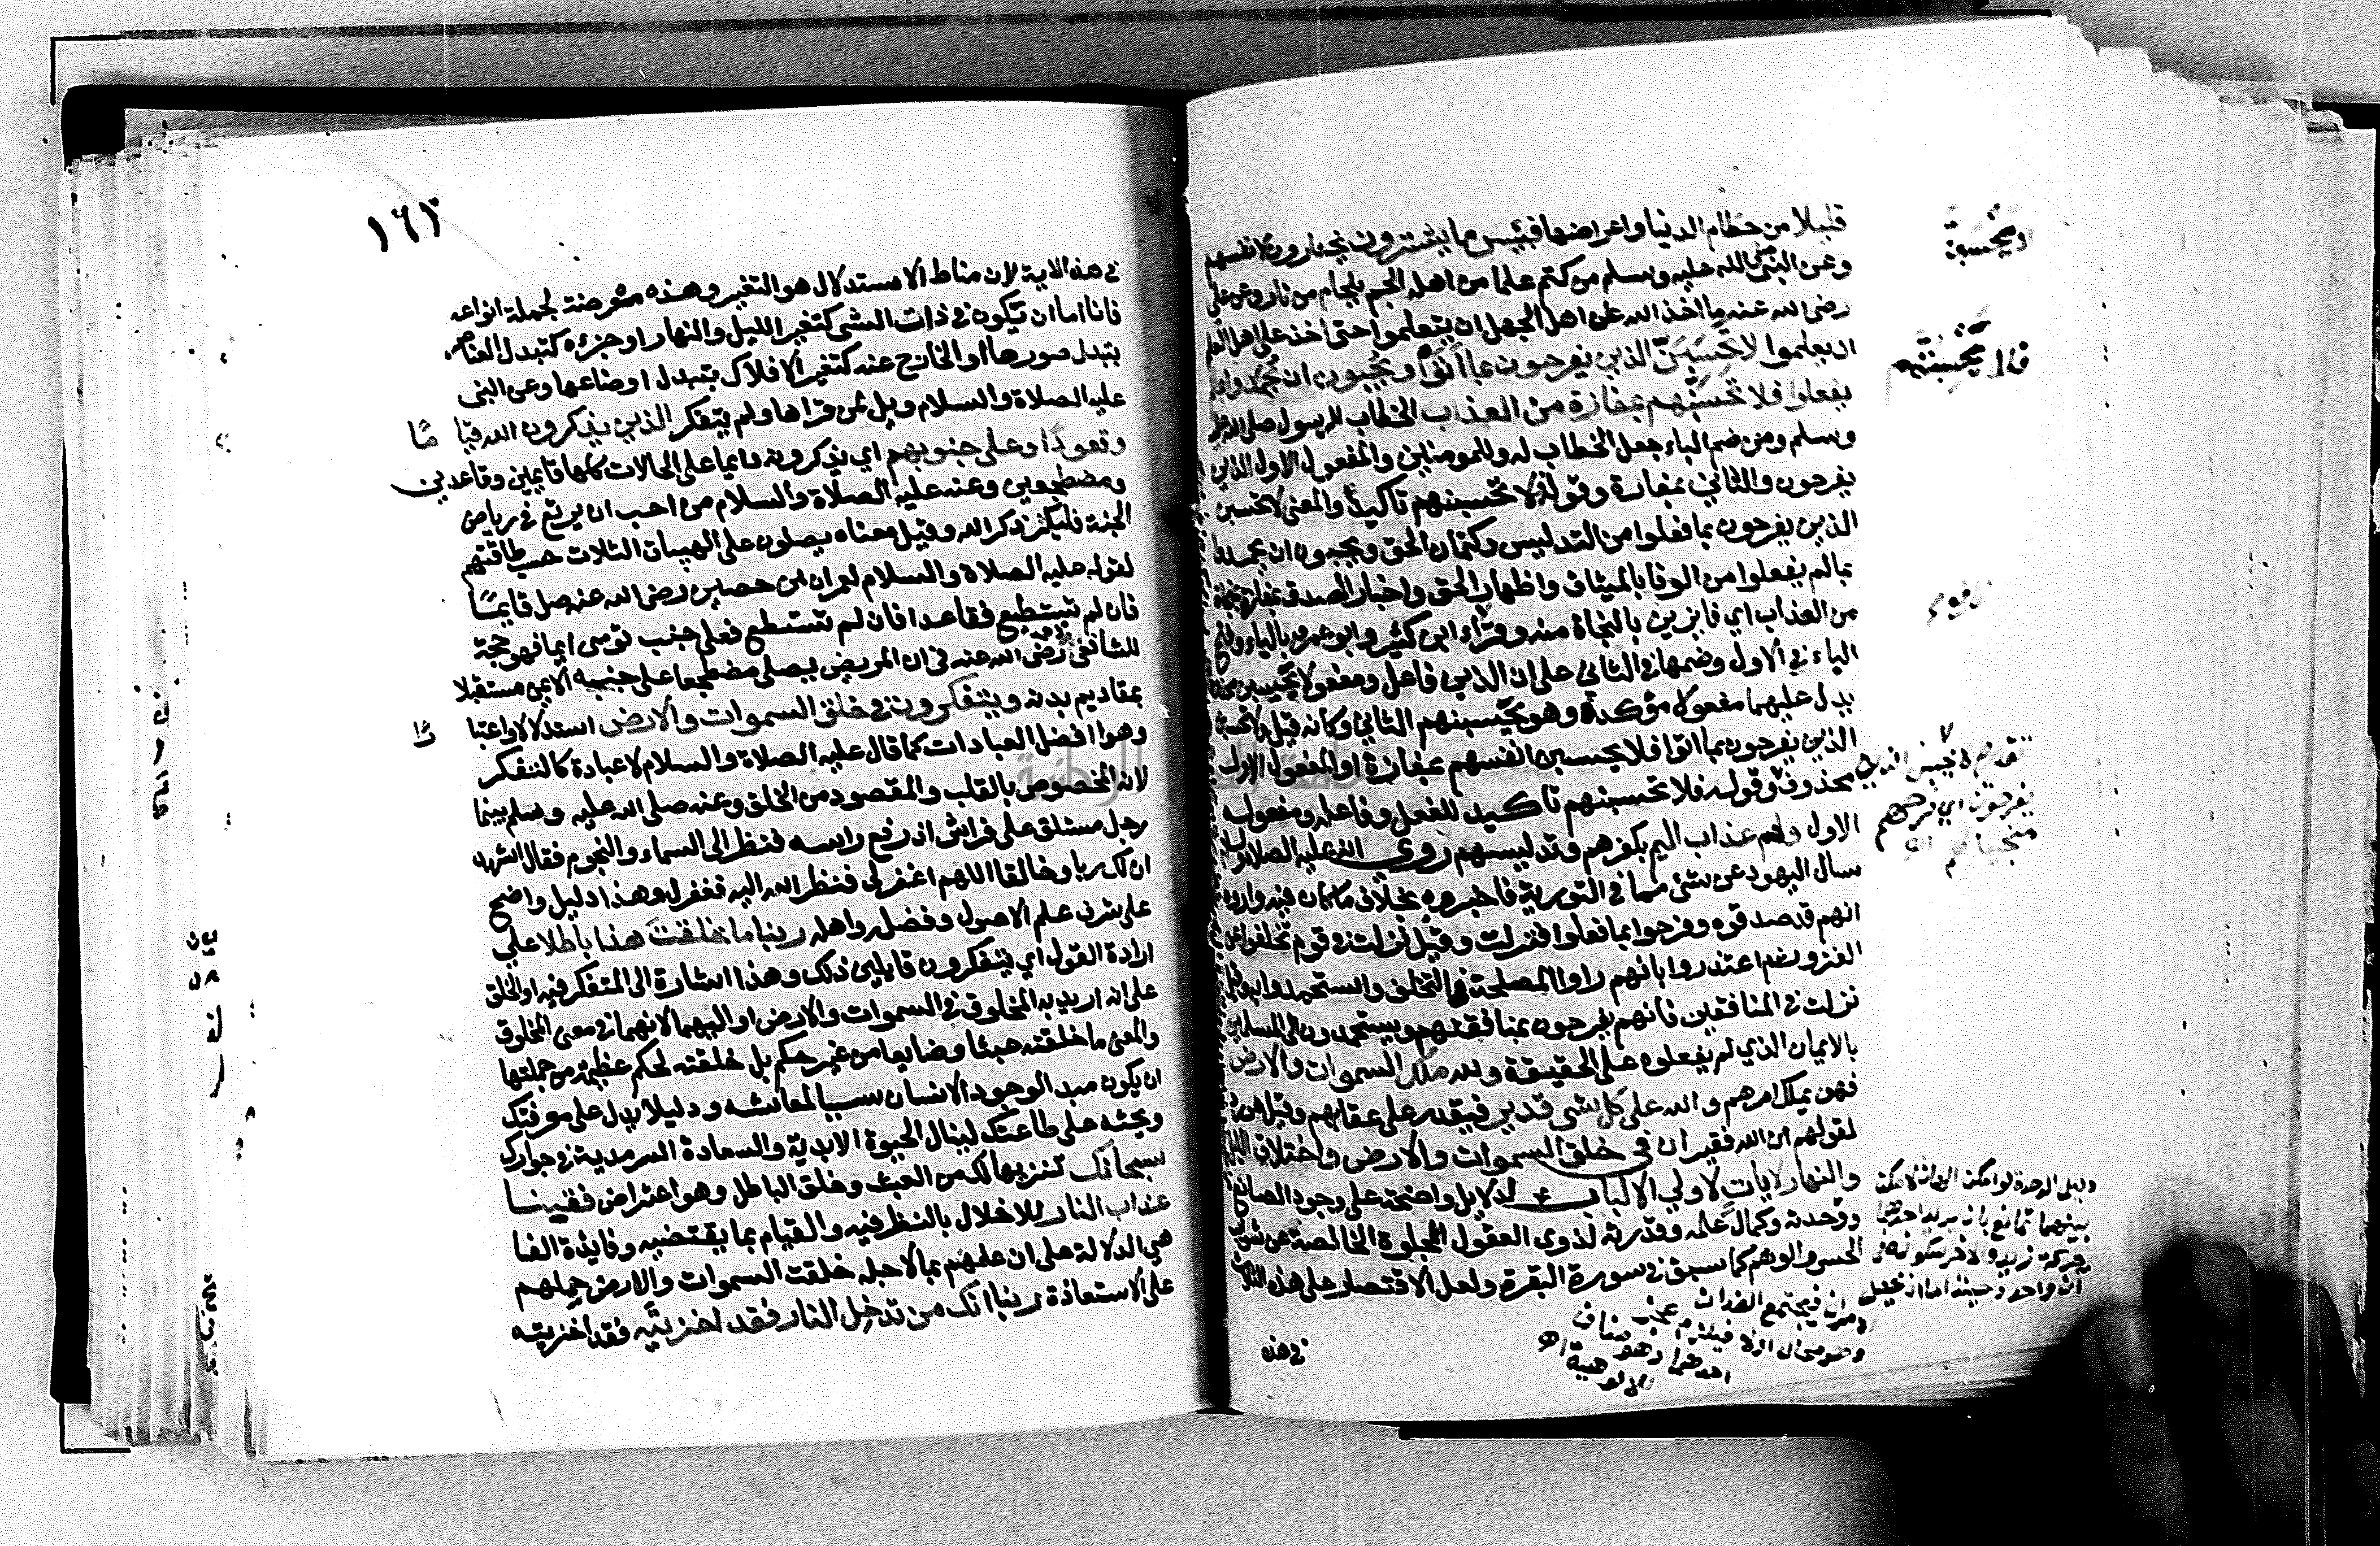 قليلا من حطام الدنيا واعراضها فبئس ما يشترون يختارون لانفسهم
وعن النبي صلى الله عليه وسلم من كتم علما من اهله الجم بلجام من نار وعن علي
رضى الله عنه ما اخذ الله على اهل الجهل ان يتعلموا حتى اخذ على اهل العلم
ان يعلموا لا تحسبن الذين يفرحون بما اتوا ويحبون ان يحمدوا بما لم
يفعلوا فلا تحسبنهم بمفازة من العذاب الخطاب للرسول صلى الله عليه
وسلم ومن ضم الباء جعل الخطاب له وللمومنين والمفعول الاول الذين
يفرحون والثاني بمفازة وقوله لا تحسبنهم تاكيد والمعنى لا تحسبن
الذين يفرحون بما فعلوا من التدليس وكتمان الحق ويحبون ان يحمدوا
بما لم يفعلوا من الوفا بالميثاق واظهار الحق واخبار الصدق بمفازة بمنجاة
من العذاب اي فايزين بالنجاة منه وقراء ابن كثير وابو عمرو بالياء وفتح
الباء في الاول وضمها في الثاني على ان الذين فاعل ومفعولا يحسبن محذوفان
يدل عليهما مفعولا مؤكدة وهو يحسبنهم الثاني وكانه قيل لا تحسبن
الذين يفرحون بما اتوا فلا يحسبن انفسهم بمفازة او المفعول الاول
محذوف وقوله فلا تحسبنهم تاكيد للفعل وفاعله ومفعوله
الاول ولهم عذاب اليم بكفرهم وتدليسهم روي انه عليه الصلاة والسلام
سال اليهود عن شئ مما في التورية فاخبروه بخلاف ما كان فيه واروه
انهم قد صدقوه وفرحوا بما فعلوا فنزلت وقيل نزلت في قوم تخلفوا عن
الغزو ثم اعتذروا بانهم راوا المصلحة في التخلف واستحمدوا به وقيل
نزلت في المنافقين فانهم يفرحون بمنافقتهم ويستحمدون الى المسلمين
بالايمان الذي لم يفعلوه على الحقيقة ولله ملك السموات والارض
فهو يملك امرهم والله على كل شى قدير فيقدر على عقابهم وقيل هو رد
لقولهم ان الله فقير ان في خلق السموات والارض واختلاف الليل
والنهار لايات لاولي الالباب لدلايل واضحة على وجود الصانع
ووحدته وكمال علمه وقدرته لذوى العقول المجلوة الخالصة عن شوايب
الحس والوهم كما سبق في سورة البقرة ولعل الاقتصار على هذه الثلاث
في هذه
١٦٢
في هذه الاية لان مناط الاستدلال هو التغير وهذه متعرضة لجملة انواعه
فانا اما ان تكون في ذات الشى كتغير الليل والنهار او جزءه كتبدل العناصر
بتبدل صورها او الخارج عنه كتغير الافلاك بتبدل اوضاعها وعن النبى
عليه الصلاة والسلام ويل لمن قراها ولم يتفكر الذين يذكرون الله قيا ما
وقعودا وعلى جنوبهم اي يذكرونه دايما على الحالات كلها قايمين وقاعدين
ومضطجعين وعنه عليه الصلاة والسلام من احب ان يرتع في رياض
الجنة فليكثر ذكر الله وقيل معناه يصلون على الهيات الثلاث حسب طاقتهم
لقوله عليه الصلاة والسلام لعمران ابن حصين رضى الله عنه صل قايما
فان لم تستطع فقاعدا فان لم تستطع فعلى جنب تومى ايما فهو حجة
للشافعى رضى الله عنه في ان المريض يصلى مضطجعا على جنبه الايمن مستقبلا
بمقاديم بدنه ويتفكرون في خلق السموات والارض استدلالا واعتبا رًا
وهو افضل العبادات كما قال عليه الصلاة والسلام لا عبادة كالتفكر
لانه المخصوص بالقلب والمقصود من الخلق وعنه صلى الله عليه وسلم بينما
رجل مستلق على فراش اذ رفع راسه فنظر الى السماء والنجوم فقال اشهد
ان لك ربا وخالقا اللهم اغفر لى فنظر الله اليه فغفر له وهذا دليل واضح
على شرف علم الاصول وفضل واهله ربنا ما خلقت هذا باطلا على
ارادة القول اي يتفكرون قايلين ذلك وهذا اشارة الى المتفكر فيه او الخلق
على انه اريد به المخلوق في السموات والارض او اليهما لانهما في معنى المخلوق
والمعنى ما خلقته عبثا وضايعا من غير حكم بل خلقته لحكم عظيمة من جملتها
ان يكون مبدا لوجود الانسان سببا لمعاشه ودليلا يدل على معرفتك
ويحثه على طاعتك لينال الحيوة الابدية والسعادة السرمدية في جوارك
سبحانك تنزيها لك من العبث وخلق الباطل وهو اعتراض فقينا
عذاب النار للاخلال بالنظر فيه والقيام بما يقتضيه وفايدة الفا
هي الدلالة على ان علمهم بما لاجله خلقت السموات والارض حملهم
على الاستعاذة ربنا انك من تدخل النار فقد اخزيته فقد اخزيته